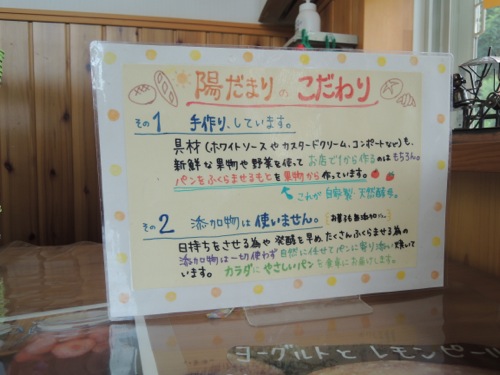 陽だまりのこだわり
その1 手作りしています。
具材(ホワイトソースやカスタードクリーム、コンポートなど)も、
新鮮な果物や野菜を使ってお店で1から作るのはもちろん。
パンをふくらませるもとを果物から作っています。
これが自家製天然酵母。
その2 添加物は使いません。
日持ちをさせる為や発酵を早め、たくさんふくらませる為の
添加物は一切使わず自然に任せてパンに寄り添い焼いて
います。カラダにやさしいパンを食卓にお届けします。
ヨーグルトとレモンピー